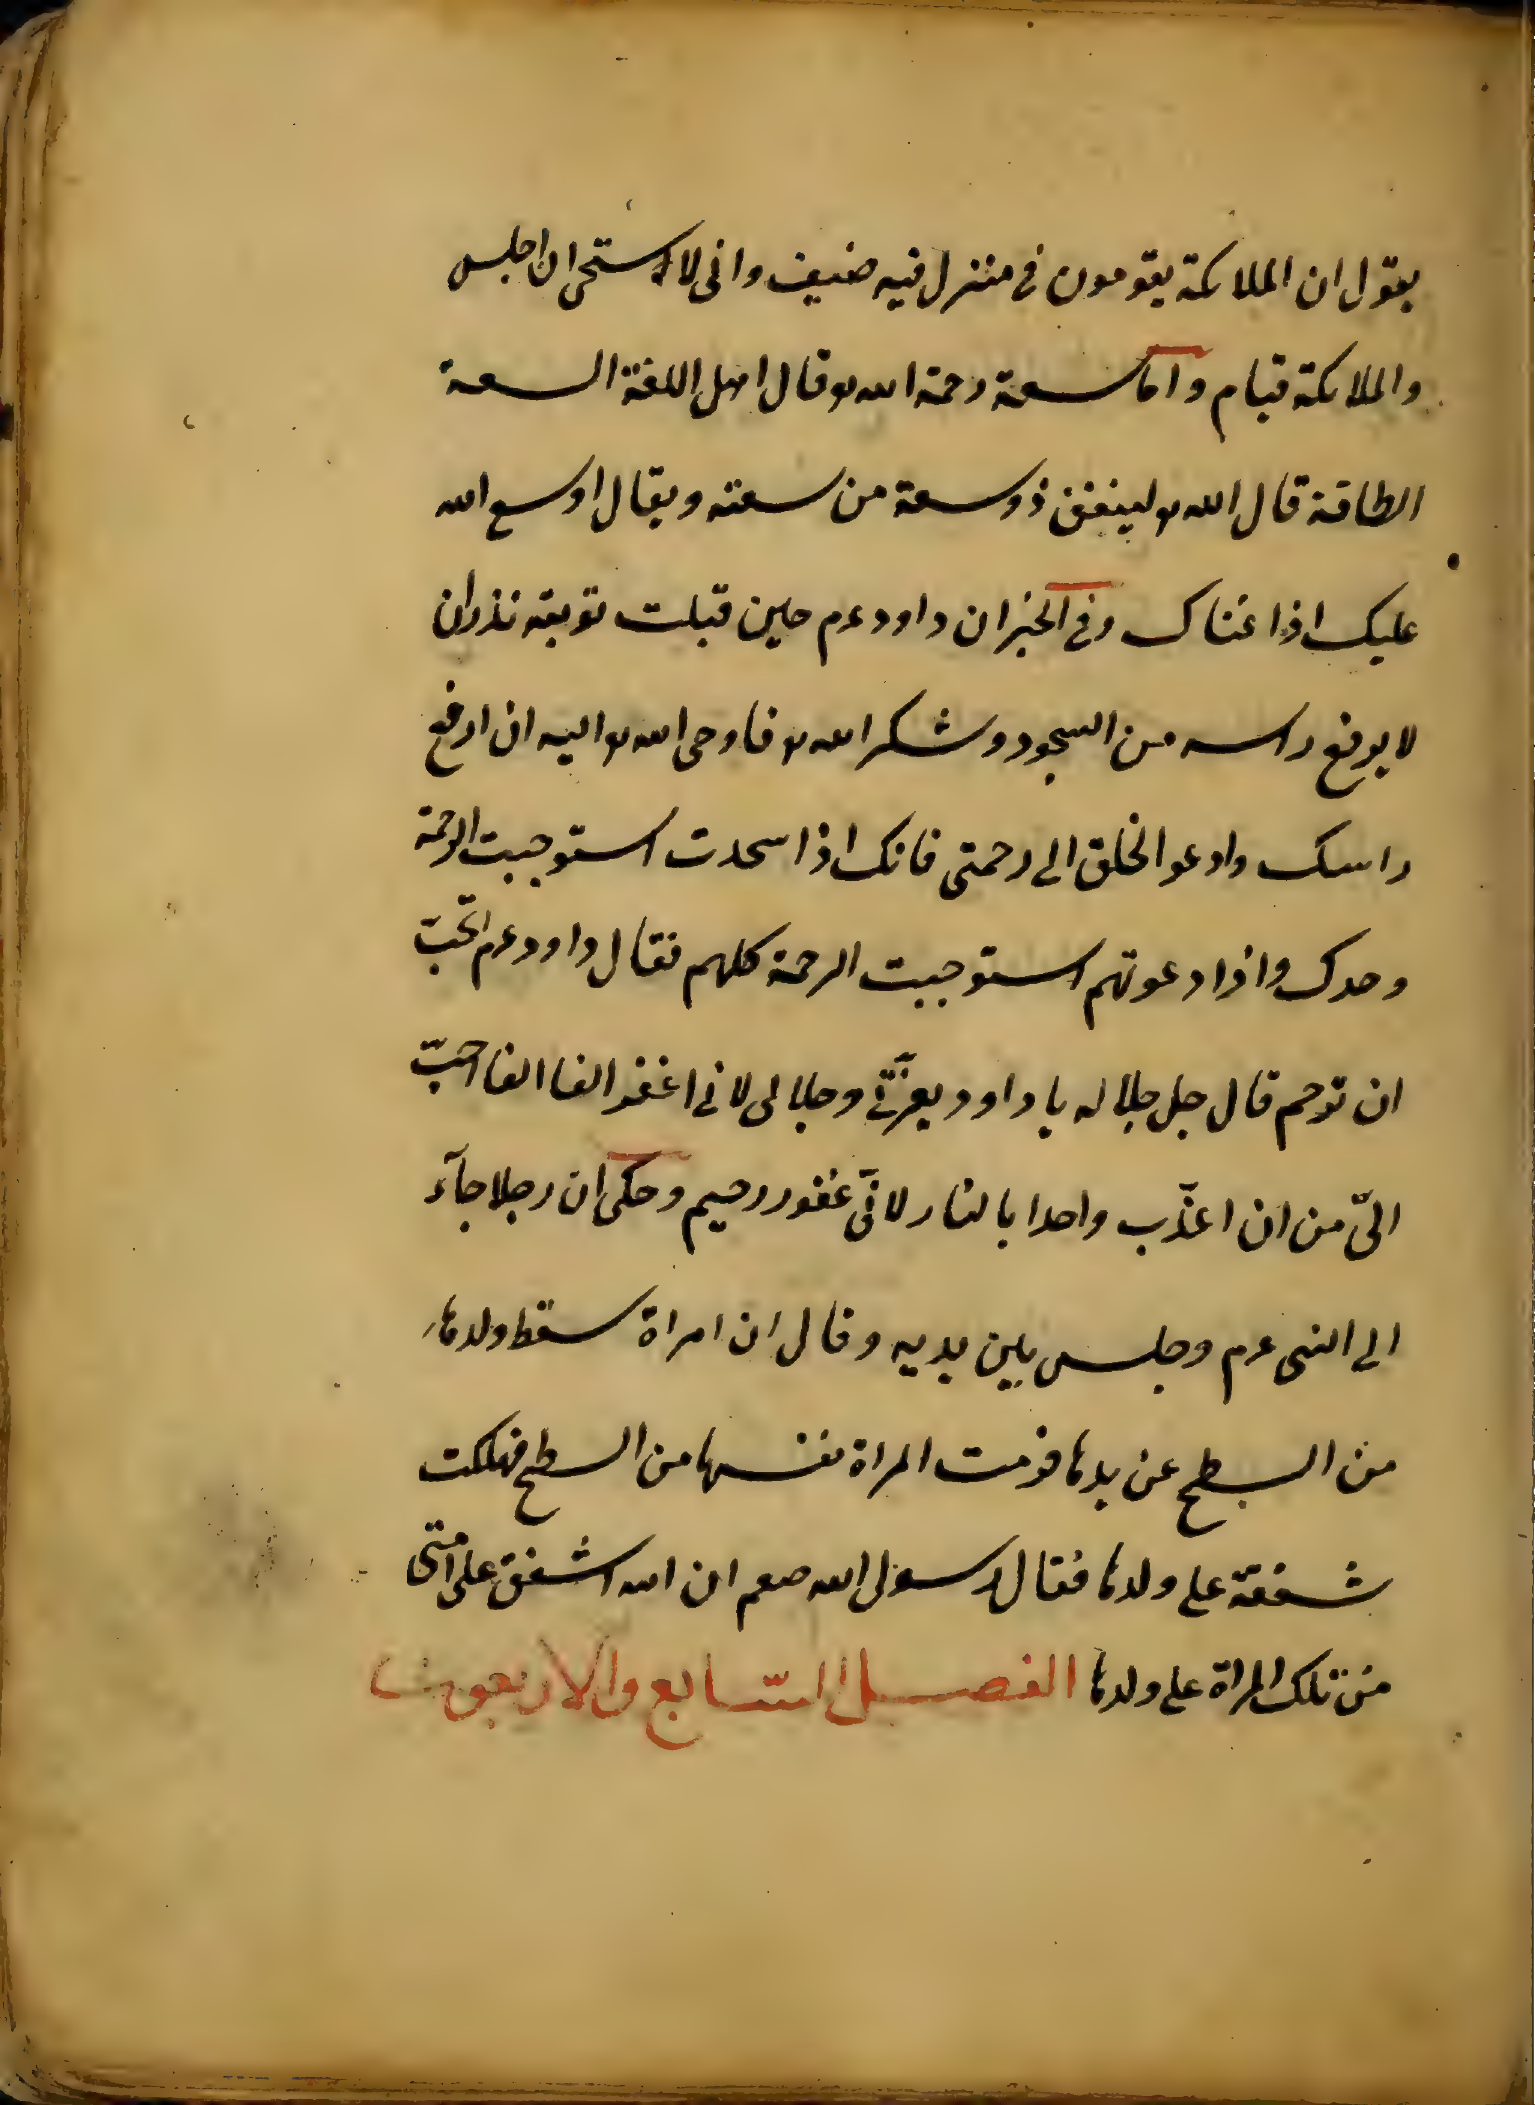 يقول ان الملائكة يقومون فى منزل فيه ضيف وانى لاستحى ان اجلس
والملائكة قيام واما سعة رحمة الله تع وقال اهل اللغة السعة
الطاقة قال الله تع لينفق ذو سعة من سعته ويقال اوسع الله
عليك اذا غناك وفى الخبر ان داود عم حين قبلت توبته نذر ان
لا يرفع راسه من السجود وشكر الله تع فاوحى الله تع اليه ان ارفع
راسك وادعو الخلق الى رحمتى فانك اذا سجدت استوجبت الرحمة
وحدك واذا دعوتهم استوجبت الرحمة كلهم فقال داود عم اتحبّ
ان ترحم قال جل جلاله يا داود بعزّتى وجلالى لانى اغفر الفا الفا احبّ
الىّ من ان اعذّب واحدا بالنار لانّى غفور رحيم وحكى ان رجلا جآء
الى النبى عم وجلس بين يديه وقال ان امراة سقط ولدها
من السطح عن يدها فرمت المراة نفسها من السطح فهلكت
شفقة على ولدها فقال رسول الله صعم ان الله اشفق على امتى
من تلك المراة على ولدها الفصل السّابع والاربعون